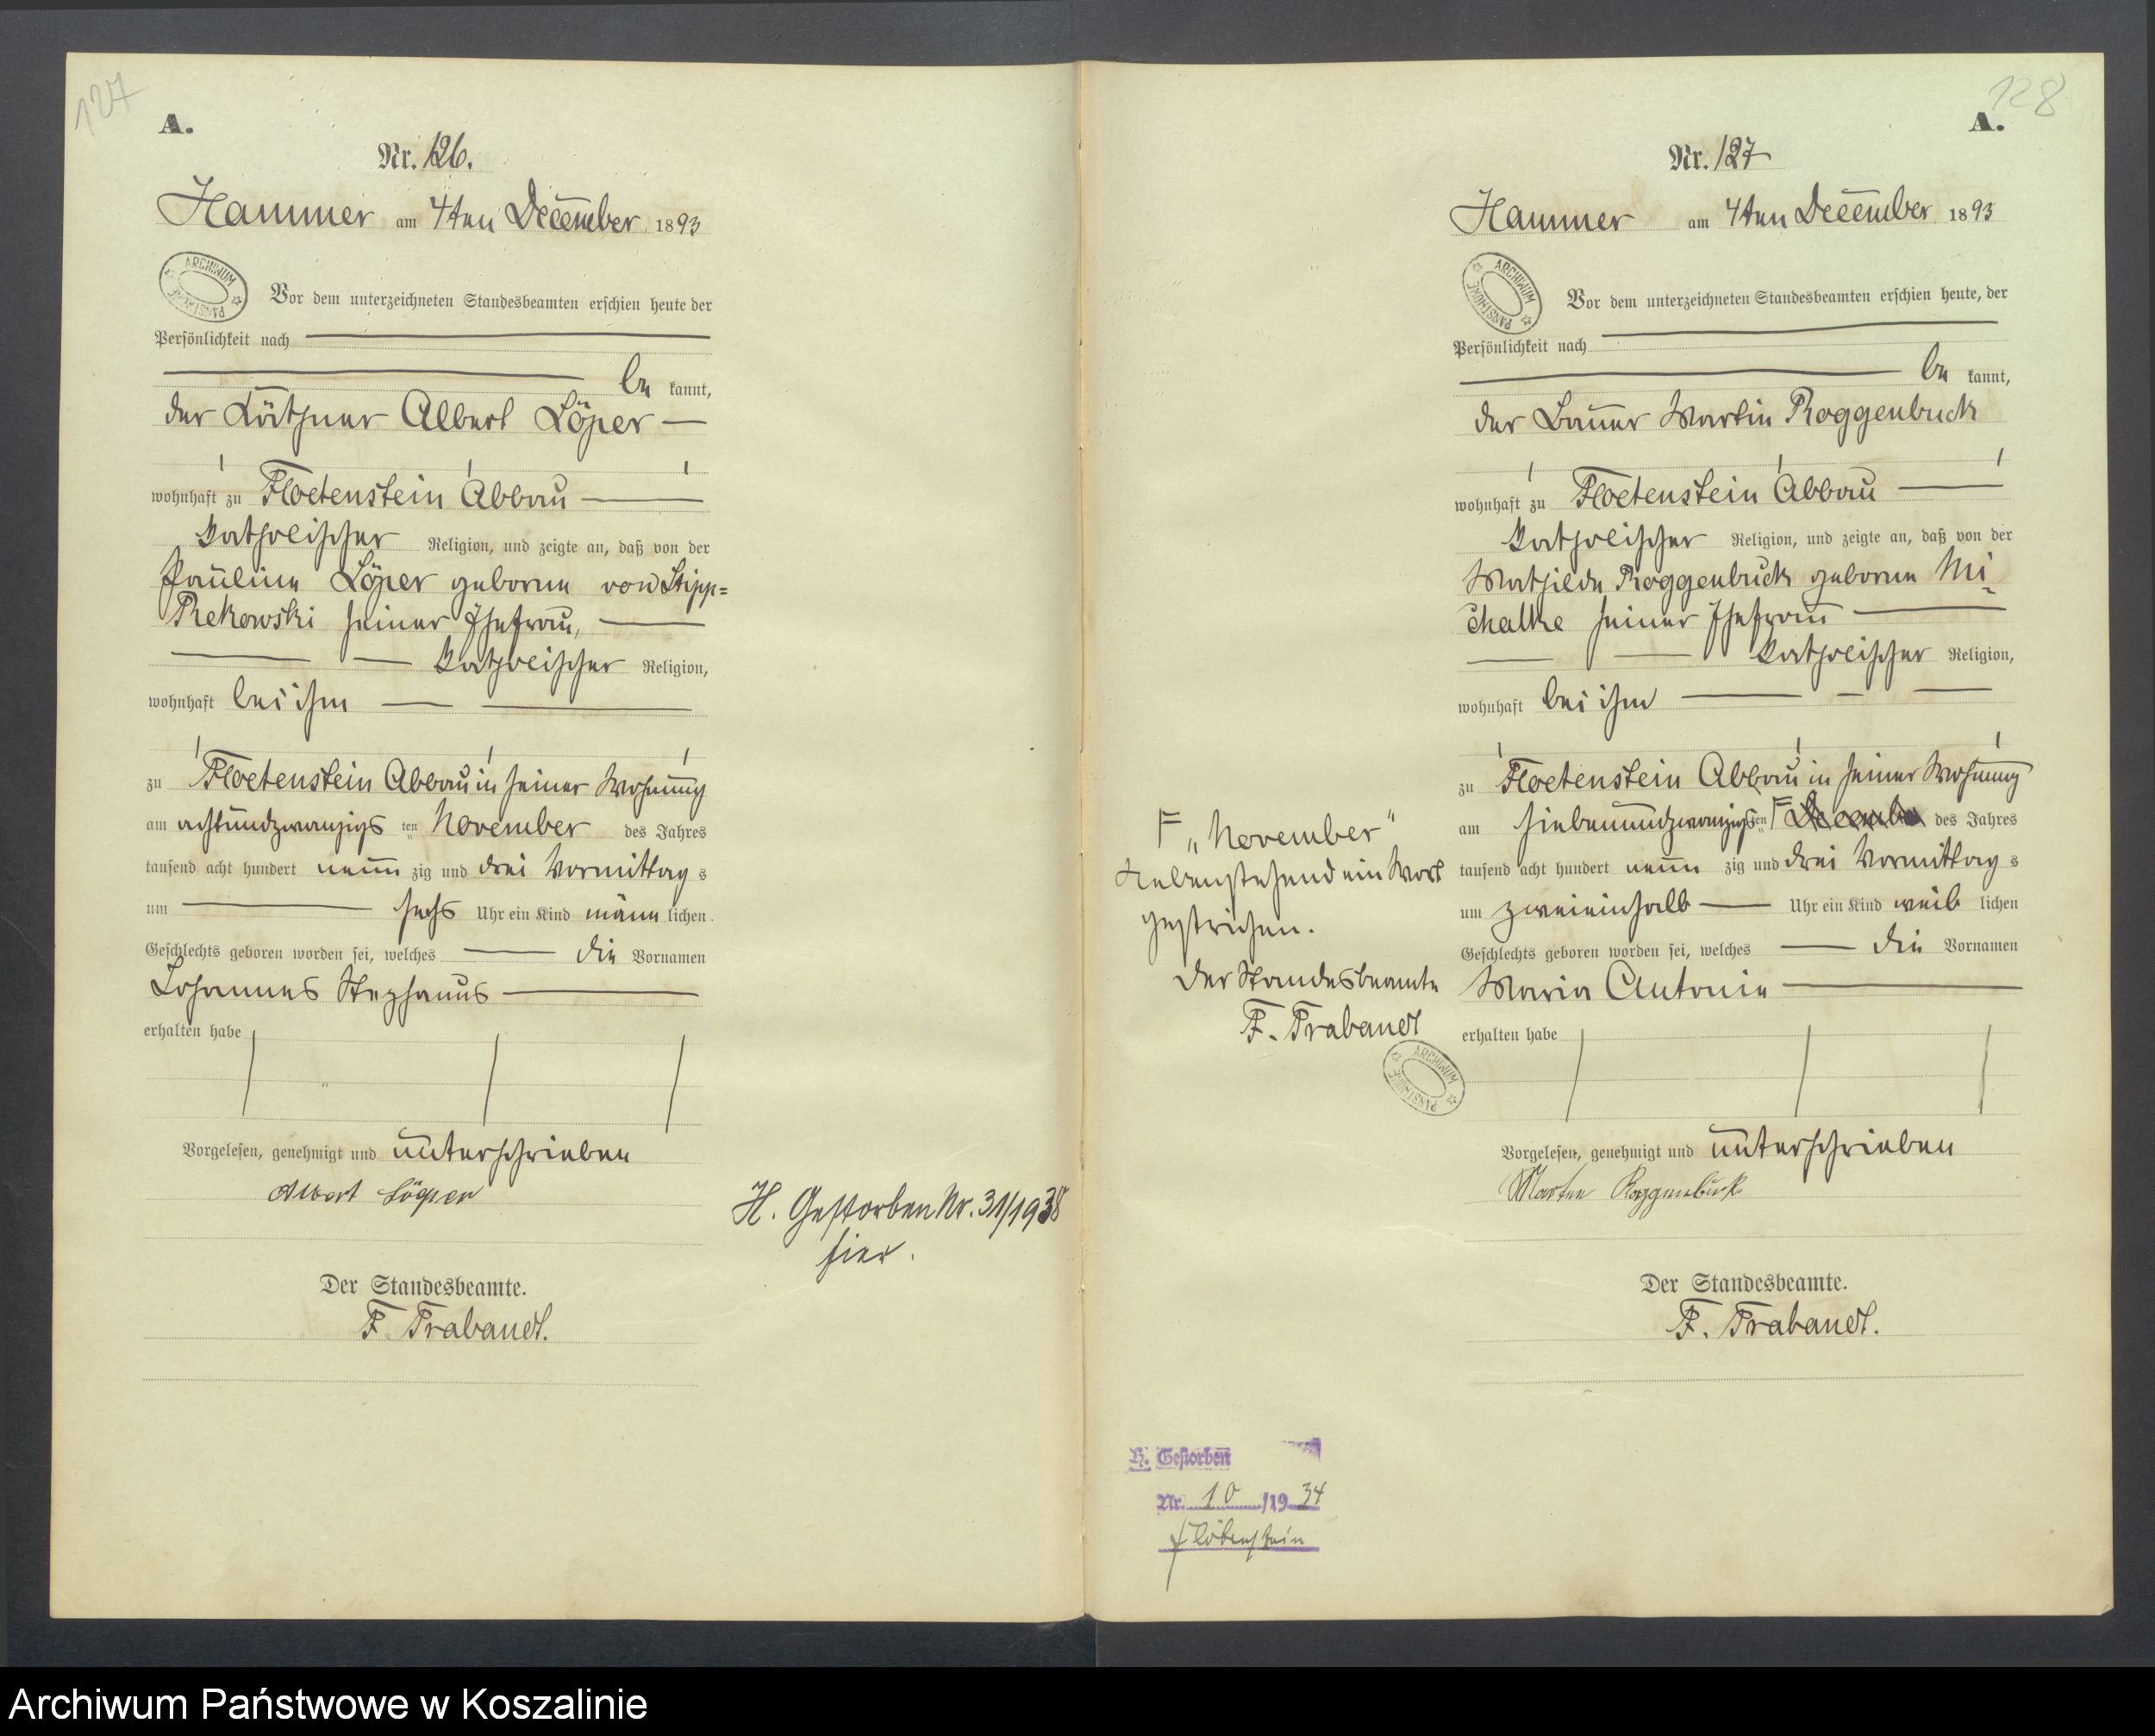 127
A.
Nr. 126.
Hammer am 4ten December 1893
ARCHIWUM PAŃSTWOWE
Vor dem unterzeichneten Standesbeamten erschien heute der
Persönlichkeit nach
be kannt,
der Käthner Albert Löper
wohnhaft zu Floetenstein Abbau
katholischer Religion, und zeigte an, daß von der
Pauline Löper geborne von Stipp=
Rekowski seiner Ehefrau,
katholischer Religion,
wohnhaft bei ihm
zu Floetenstein Abbau in seiner Wohnung
am achtundzwanzigs ten November des Jahres
tausend acht hundert neun zig und drei Vormittag s
um sechs Uhr ein Kind männ lichen
Geschlechts geboren worden sei, welches die Vornamen
Johannes Stephanus
erhalten habe
Vorgelesen, genehmigt und unterschrieben
Albert Löper
Der Standesbeamte.
F. Trabandt.
H. Gestorben Nr. 31/1938
hier.
128
A.
Nr. 127
Hammer am 4ten December 1893
ARCHIWUM PAŃSTWOWE
Vor dem unterzeichneten Standesbeamten erschien heute, der
Persönlichkeit nach
be kannt,
der Bauer Martin Roggenbuck
wohnhaft zu Floetenstein Abbau
katholischer Religion, und zeigte an, daß von der
Mathilde Roggenbuck geborne Mi
chalke seiner Ehefrau
katholischer Religion,
wohnhaft bei ihm
zu Floetenstein Abbau in seiner Wohnung
am siebenundzwanzigs ten F December des Jahres
tausend acht hundert neun zig und drei Vormittag s
um zweieinhalb Uhr ein Kind weib lichen
Geschlechts geboren worden sei, welches die Vornamen
Maria Antonie
erhalten habe
Vorgelesen, genehmigt und unterschrieben
Martin Roggenbuck
Der Standesbeamte.
F. Trabandt.
F „November“
Nebenstehend ein Wort
gestrichen.
Der Standesbeamte
F. Trabandt
ARCHIWUM PAŃSTWOWE
H. Gestorben
Nr. 10 /19 34
Flötenstein
Archiwum Państwowe w Koszalinie